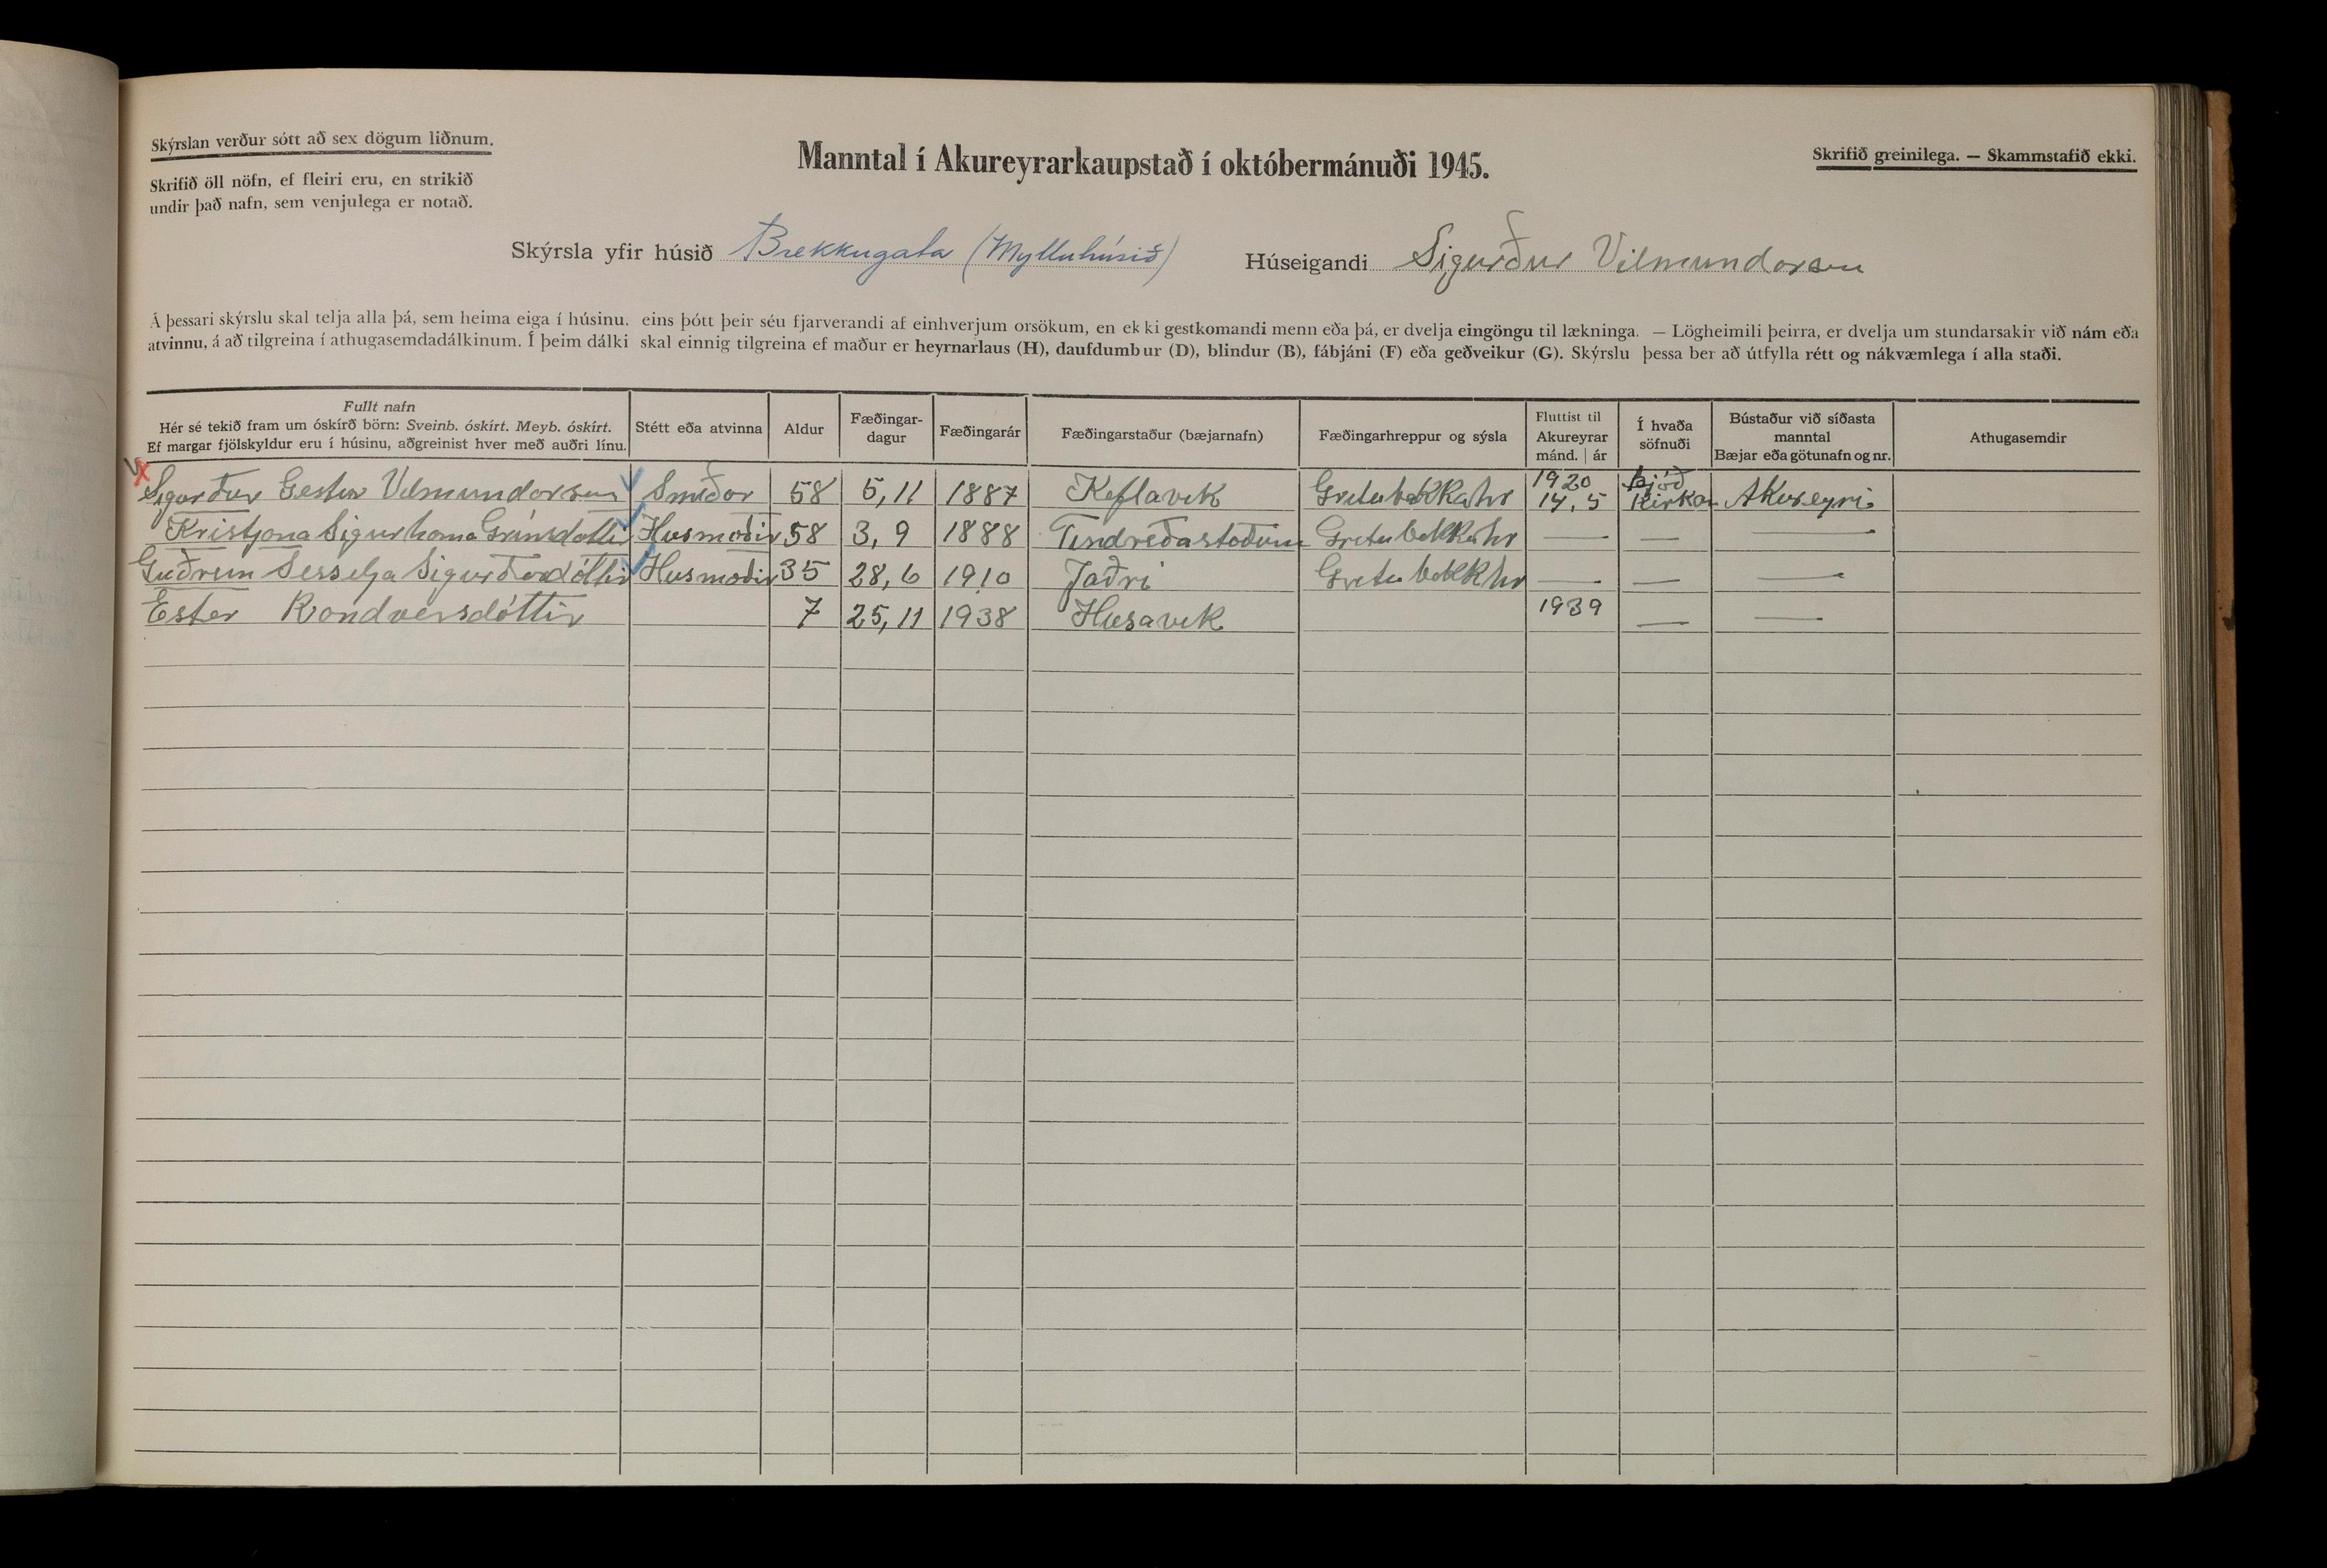 Skýrslan verður sótt að sex dögum liðnum.
Skrifið öll nöfn, ef fleiri eru, en strikið
undir það nafn, sem venjulega er notað.
Manntal í Akureyrarkaupstað í októbermánuði 1945.
Skrifið greinilega. — Skammstafið ekki.
Skýrsla yfir húsið Brekkugata (Mylluhúsið) Húseigandi Sigurður Vilmundarson
Á þessari skýrslu skal telja alla þá, sem heima eiga í húsinu, eins þótt þeir séu fjarverandi af einhverjum orsökum, en ekki gestkomandi menn eða þá, er dvelja eingöngu til lækninga. — Lögheimili þeirra, er dvelja um stundarsakir við nám eða
atvinnu, á að tilgreina í athugasemdadálkinum. Í þeim dálki skal einnig tilgreina ef maður er heyrnarlaus (H), daufdumbur (D), blindur (B), fábjáni (F) eða geðveikur (G). Skýrslu þessa ber að útfylla rétt og nákvæmlega í alla staði.
Fullt nafn
Hér sé tekið fram um óskírð börn: Sveinb. óskírt. Meyb. óskírt.
Ef margar fjölskyldur eru í húsinu, aðgreinist hver með auðri línu.
Stétt eða atvinna
Aldur
Fæðingar-
dagur
Fæðingarár
Fæðingarstaður (bæjarnafn)
Fæðingarhreppur og sýsla
Fluttist til
Akureyrar
mánd. | ár
Í hvaða
söfnuði
Bústaður við síðasta
manntal
Bæjar eða götunafn og nr.
Athugasemdir
Sigurður Gestur Vilmundarson Smiðor 58 5,11 1887 Keflavik Gretubakkahr 1920 14.5 Þjóð Kirkan Akureyri
Kristjana Sigurhana Grímsdóttir Husmoðir 58 3,9 1888 Tindreðastoðum Gretubakkahr — — —
Guðrun Sesselja Sigurðardóttir Husmoðir 35 28,6 1910 Jaðri Gretubakkhr — — —
Ester Randversdóttir 7 25,11 1938 Husavik 1939 — —